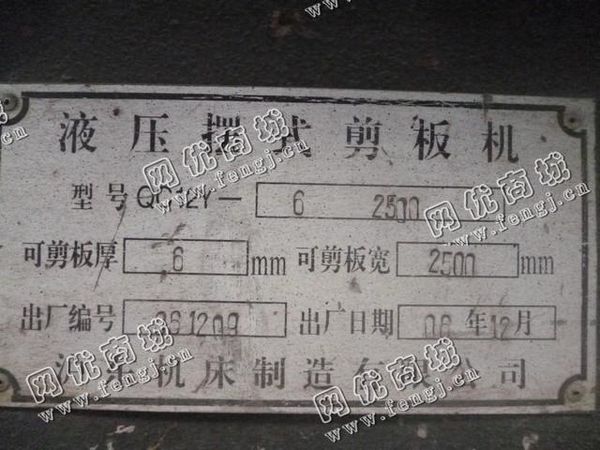 液压摆式剪板机
型号 QC12Y— 6 2500
可剪板厚 6 mm 可剪板宽 2500 mm
出厂编号 061209 出厂日期 06 年 12 月
机床制造有限公司
网优商城
www.fengj.cn
网优商城
www.fengj.cn
网优商城
www.fengj.cn
网优商城
www.fengj.cn
网优商城
www.fengj.cn